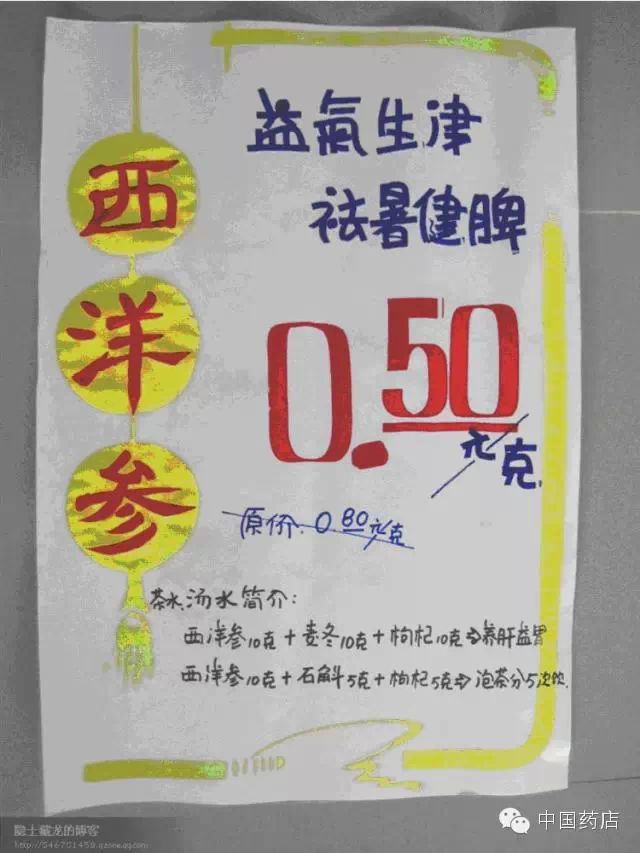 西洋参
益氣生津
祛暑健脾
0.50
元/克
原价:0.80元/克
茶水,汤水简介:
西洋参10克+麦冬10克+枸杞10克⇒养肝益胃
西洋参10克+石斛5克+枸杞5克⇒泡茶分5次饮.
隐士藏龙的博客
http://546701459.qzone.qq.com
中国药店